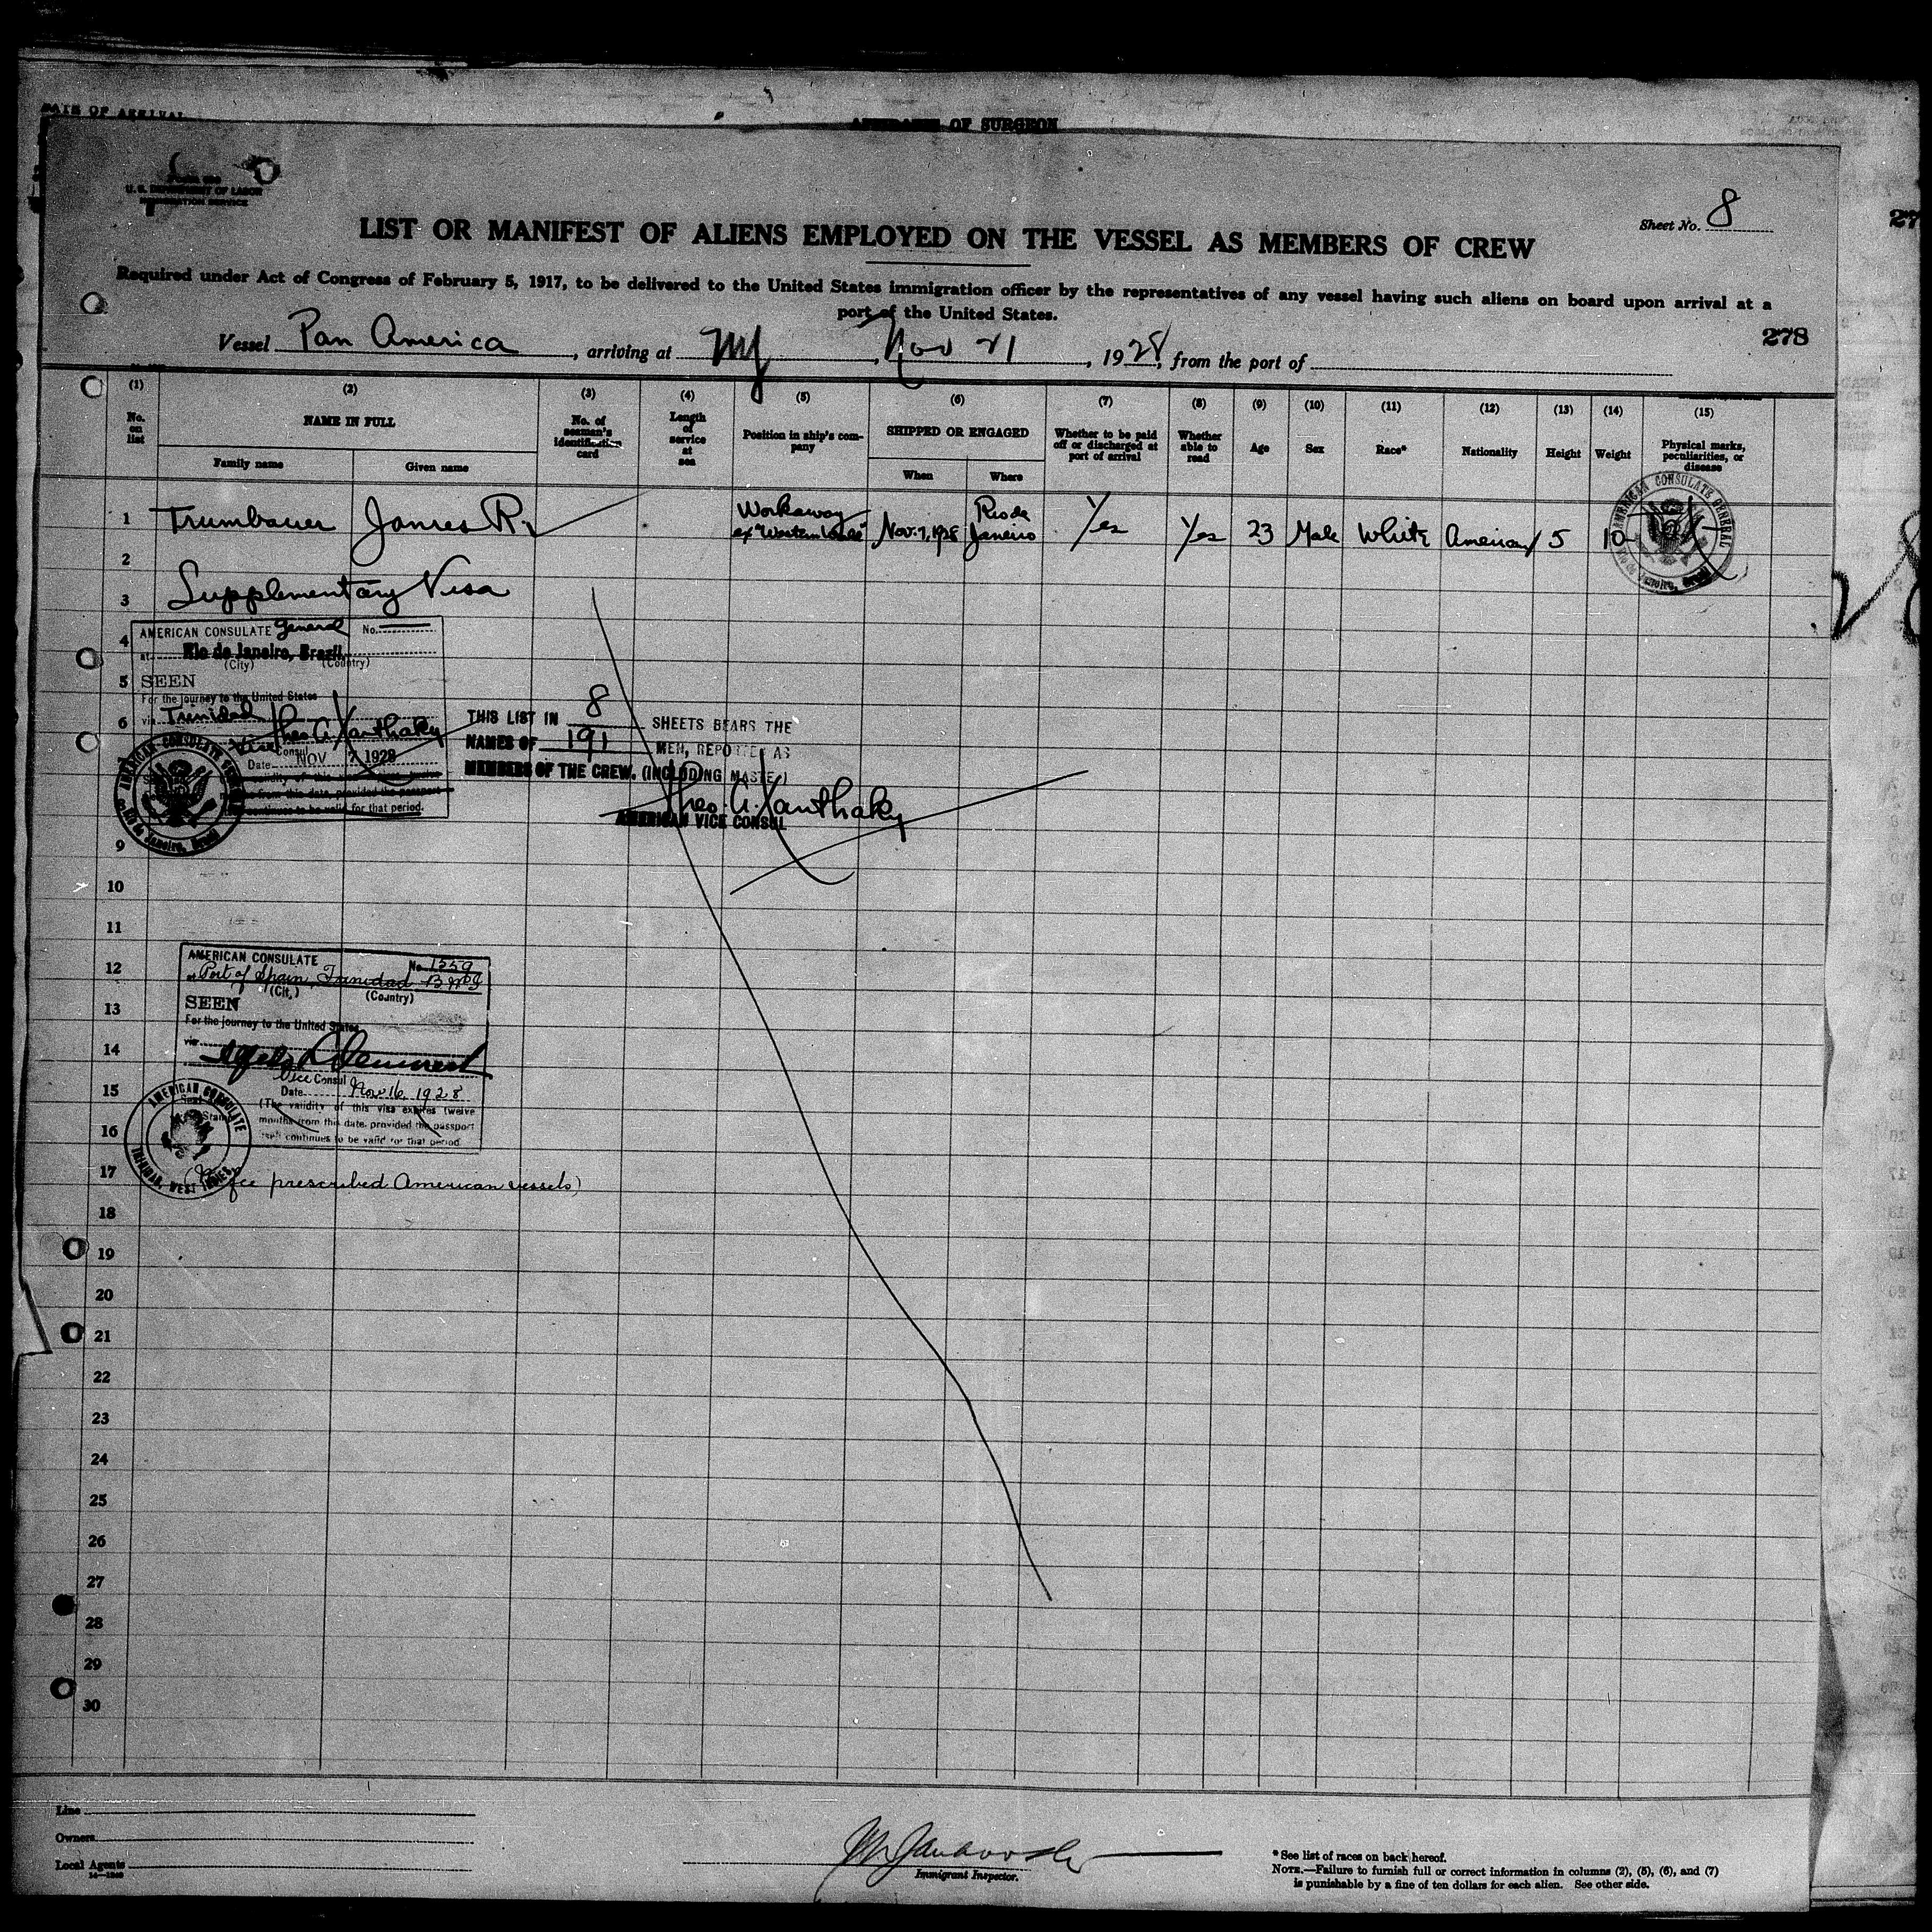 DATE OF ARRIVAL
OF SURGEON
U.S. DEPARTMENT OF LABOR
IMMIGRATION SERVICE
Sheet No. 8
LIST OR MANIFEST OF ALIENS EMPLOYED ON THE VESSEL AS MEMBERS OF CREW
Required under Act of Congress of February 5, 1917, to be delivered to the United States immigration officer by the representatives of any vessel having such aliens on board upon arrival at a
port of the United States.
278
Vessel Pan America, arriving at NY, Nov 21, 1928, from the port of
(1) (2) (3) (4) (5) (6) (7) (8) (9) (10) (11) (12) (13) (14) (15)
No. on list NAME IN FULL No. of seaman's identification card Length of service at sea Position in ship's company SHIPPED OR ENGAGED Whether to be paid off or discharged at port of arrival Whether able to read Age Sex Race* Nationality Height Weight Physical marks, peculiarities, or disease
Family name Given name When Where
1 Trumbauer James R. Workaway ex "Western Nov. 7, 1928 Rio de Janeiro Yes Yes 23 Male White American 5 10
AMERICAN CONSULATE GENERAL
Rio de Janeiro, Brazil
2
3 Supplementary Visa
4 AMERICAN CONSULATE General No.
at Rio de Janeiro, Brazil
(City) (Country)
5 SEEN
For the journey to the United States
6 via Trinidad
Theo. A. Xanthaky
Vice Consul
Date NOV 7 1928
validity of this
from this date, provided the passport
continues to be valid for that period.
AMERICAN CONSULATE GENERAL
Rio de Janeiro, Brazil
THIS LIST IN 8 SHEETS BEARS THE
NAMES OF 191 MEN, REPORTED AS
MEMBERS OF THE CREW. (INCLUDING MASTER)
Theo. A. Xanthaky
AMERICAN VICE CONSUL
9
10
11
12 AMERICAN CONSULATE No. 1559
at Port of Spain, Trinidad B.W.I
(City) (Country)
13 SEEN
For the journey to the United States
14 via
Vice Consul
15 Date Nov 16 1928
(The validity of this visa expires twelve
months from this date, provided the passport
16 itself continues to be valid for that period.
AMERICAN CONSULATE
TRINIDAD, WEST INDIES
17 (No fee prescribed American vessels)
18
19
20
21
22
23
24
25
26
27
28
29
30
Line
Owners
Local Agents
14—1240
Immigrant Inspector.
* See list of races on back hereof.
NOTE.—Failure to furnish full or correct information in columns (2), (5), (6), and (7)
is punishable by a fine of ten dollars for each alien. See other side.